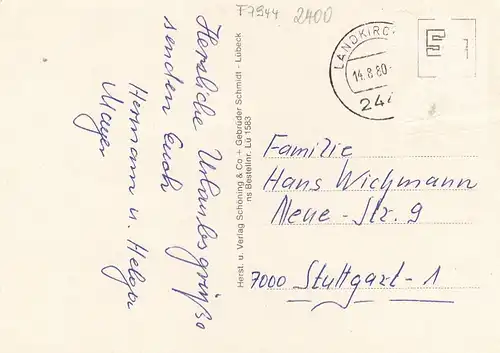 F7944 2400
Herzliche Urlaubsgrüße
senden Euch
Hermann u. Helga
Mayer
Herst. u. Verlag Schöning & Co + Gebrüder Schmidt - Lübeck
ns Bestellnr. Lü 1583
LANDKIRC
14.8.80
244
E 1
Familie
Hans Wichmann
Neue-Str. 9
7000 Stuttgart-1